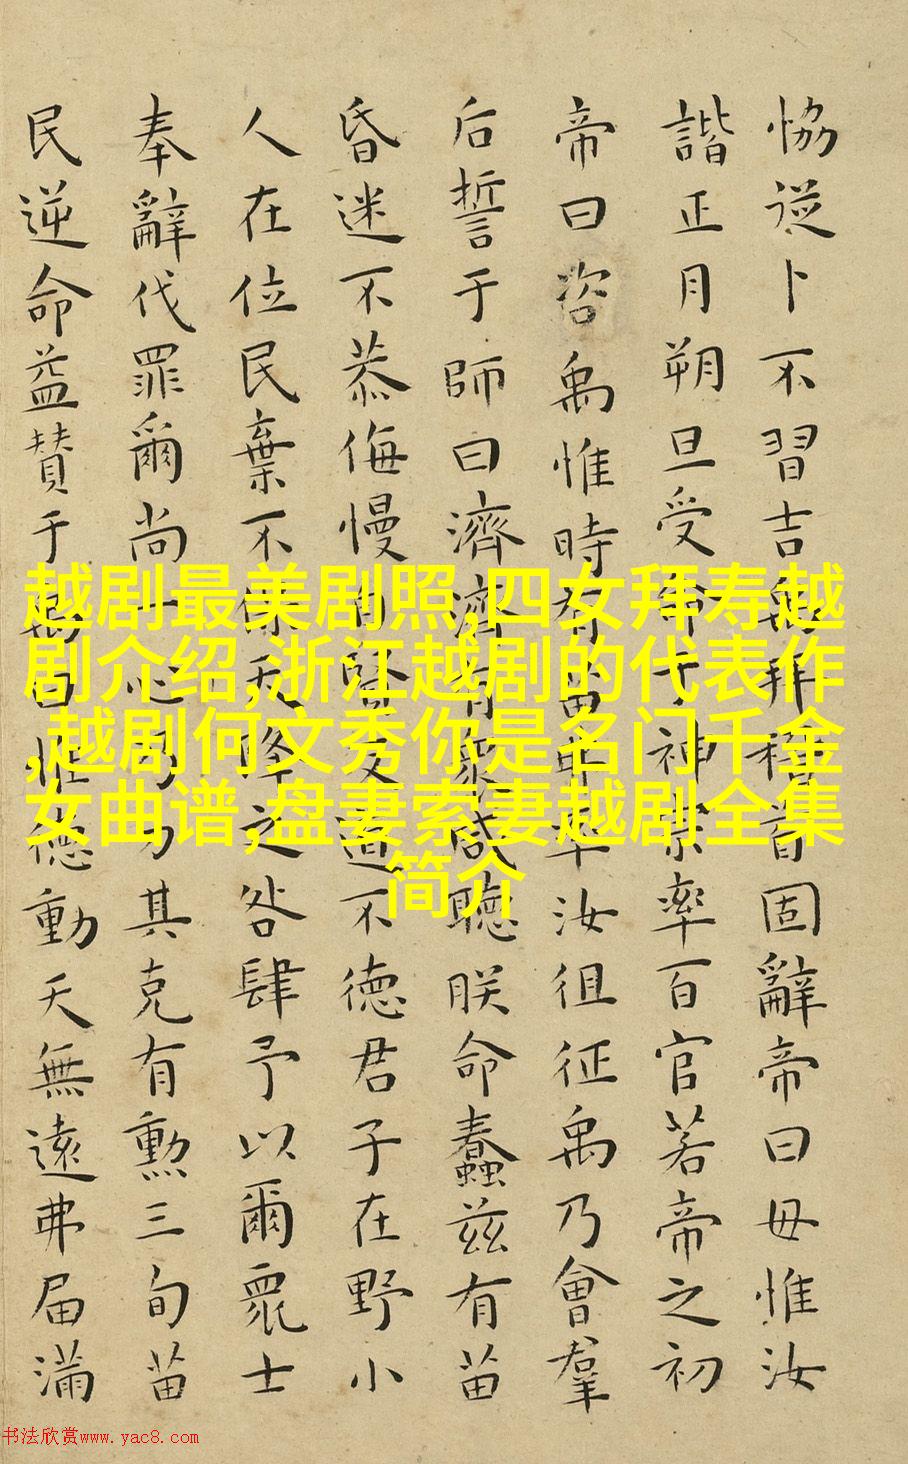 恊從卜不習吉禹拜稽首固辭帝曰毋惟汝
諧正月朔旦受命于神宗率百官若帝之初
帝曰咨禹惟時有苗弗率汝徂征禹乃會羣
后誓于師曰濟濟有衆咸聽朕命蠢茲有苗
昏迷不恭侮慢自賢反道不德君子在野小
人在位民棄不保天降之咎肆予以爾衆士
奉辭伐罪爾尚一心乃力其克有勳三旬苗
民逆命益贊于禹曰惟德動天無遠弗届滿
越剧最美剧照,四女拜寿越
剧介绍,浙江越剧的代表作
,越剧何文秀你是名门千金
女曲谱,盘妻索妻越剧全集
简介
书法欣赏www.yac8.com